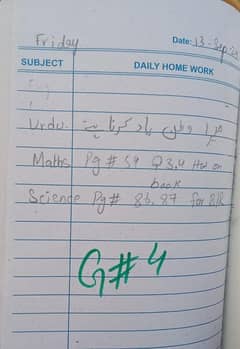 Friday
Date: 13-Sep-2
SUBJECT DAILY HOME WORK
Urdu. میرا وطن یاد کرنا ہے
Maths Pg # 59 Q 3,4 HW on
book
Science Pg# 86, 87 for
G#4